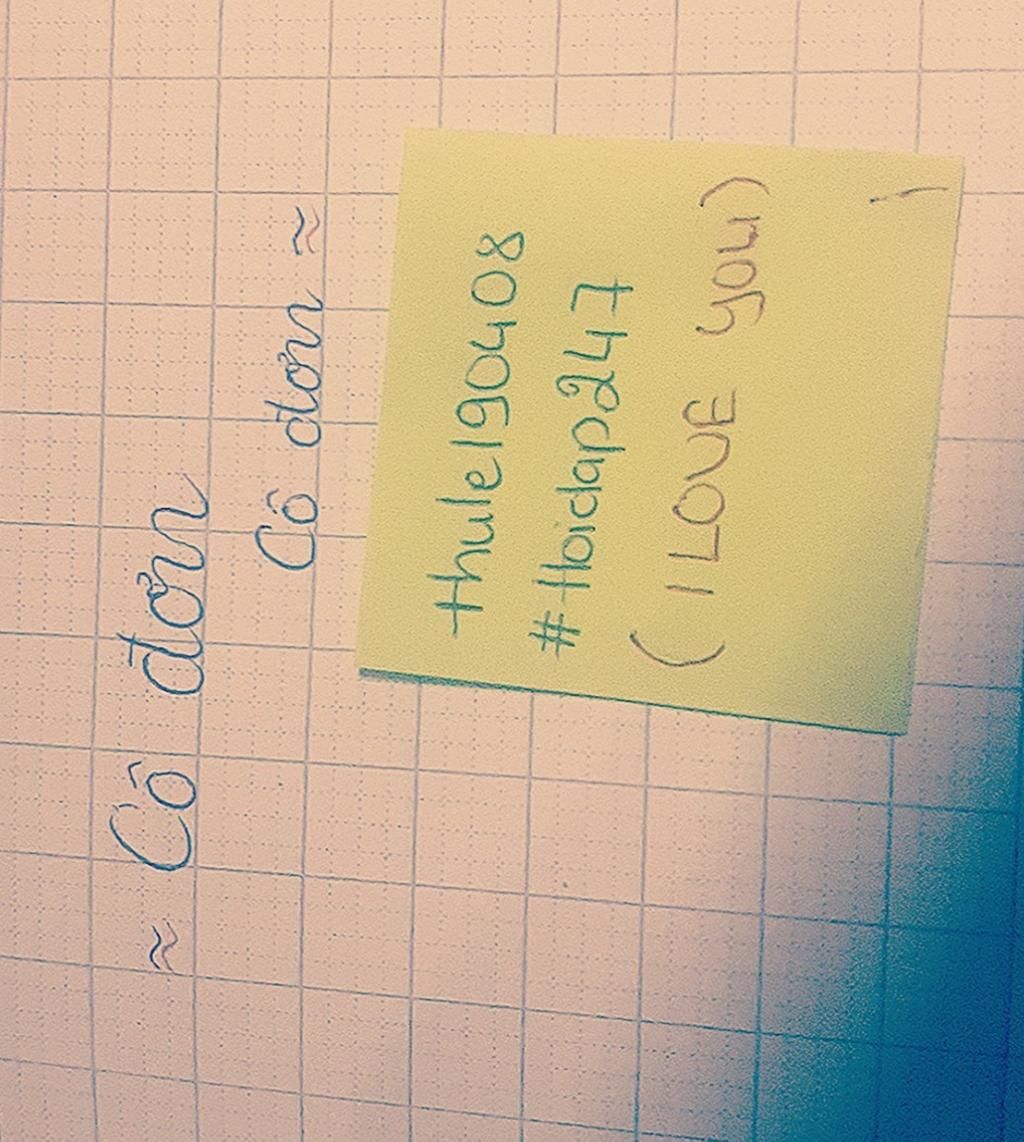 ≈ Cô đơn
Cô đơn ≈
thule190408
#Hoidap247
(I LOVE you)